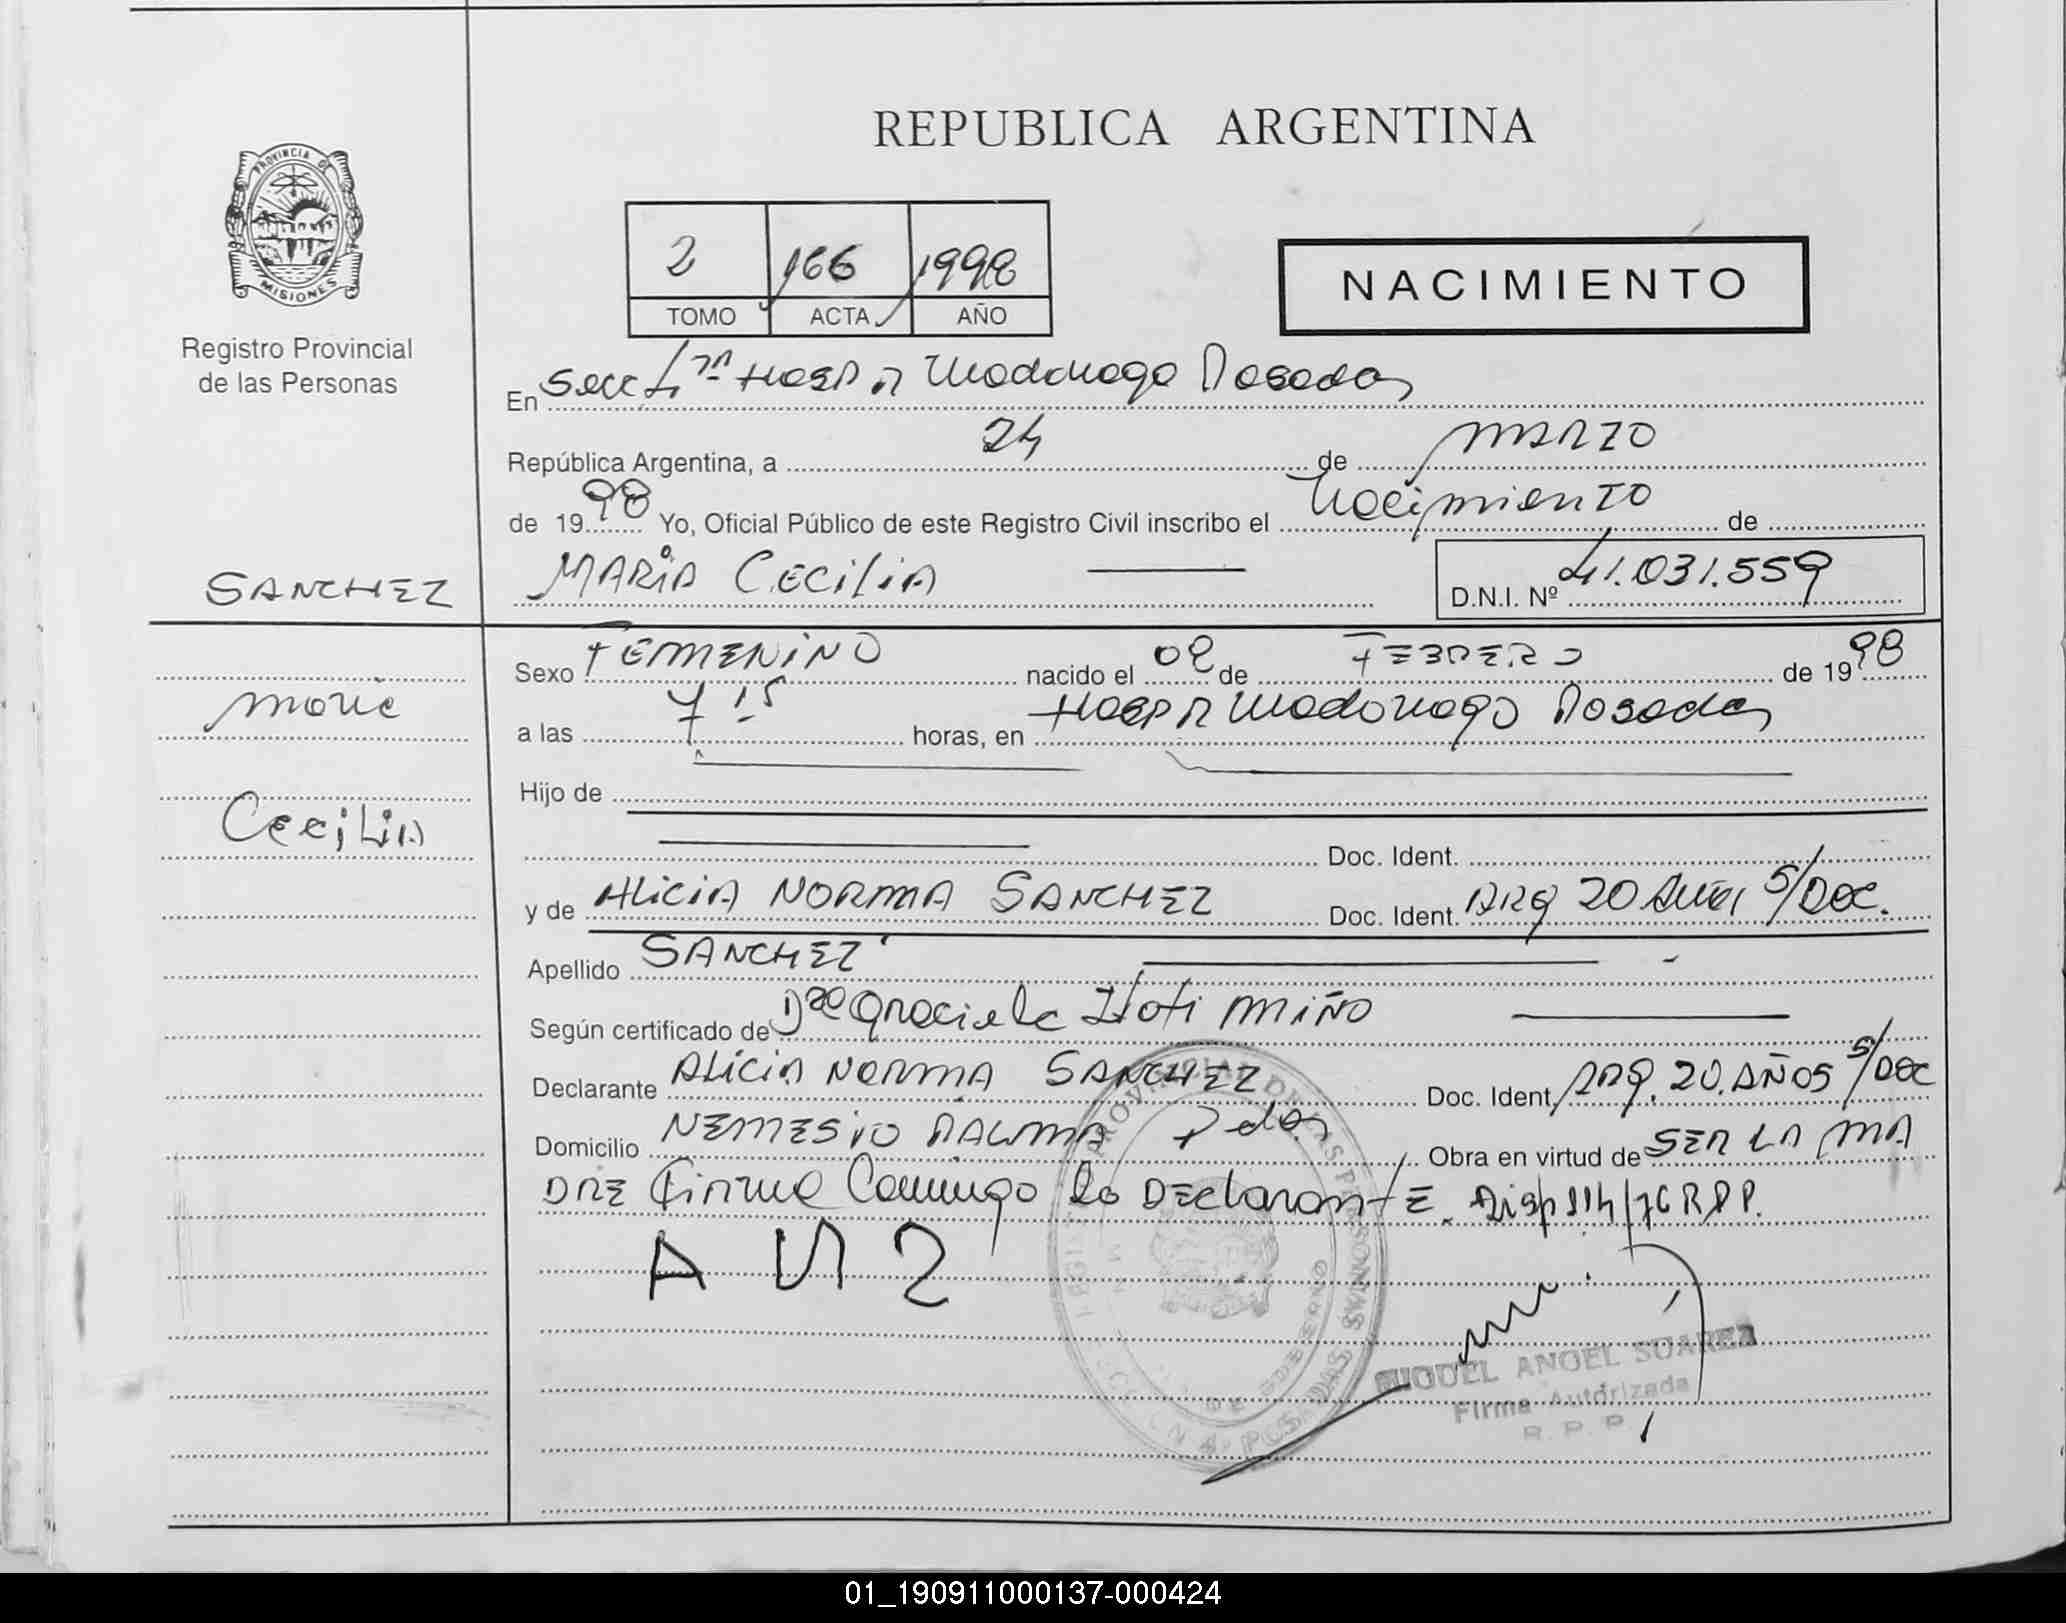 REPUBLICA ARGENTINA
PROVINCIA DE
MISIONES
Registro Provincial
de las Personas
2 166 1998
TOMO ACTA AÑO
NACIMIENTO
En Secc 1ra Hosp R Madariaga Posadas
República Argentina, a 24 de MARZO
de 1998 Yo, Oficial Público de este Registro Civil inscribo el Nacimiento de
SANCHEZ
MARIA CECILIA
D.N.I. Nº 41.031.559
Maria
Cecilia
Sexo FEMENINO nacido el 02 de FEBRERO de 1998
a las 7 15 horas, en Hosp R Madariaga Posadas
Hijo de
Doc. Ident.
y de ALICIA NORMA SANCHEZ Doc. Ident. ARG 20 Años S/Doc.
Apellido SANCHEZ
Según certificado de Dra Graciela Itati MIÑO
Declarante ALICIA NORMA SANCHEZ Doc. Ident. ARG. 20. AÑOS S/DOC
Domicilio NEMESIO PALMA Pdas Obra en virtud de SER LA MA
DRE Firma Conmigo la DEclaranTE. Disp 114/76 RPP.
MIGUEL ANGEL SUAREZ
Firma Autorizada
R. P. P.
01_190911000137-000424